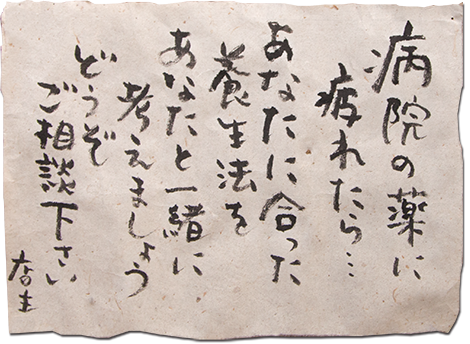 病院の薬に
疲れたら…
あなたに合った
養生法を
あなたと一緒に
考えましょう
どうぞ
ご相談下さい
店主